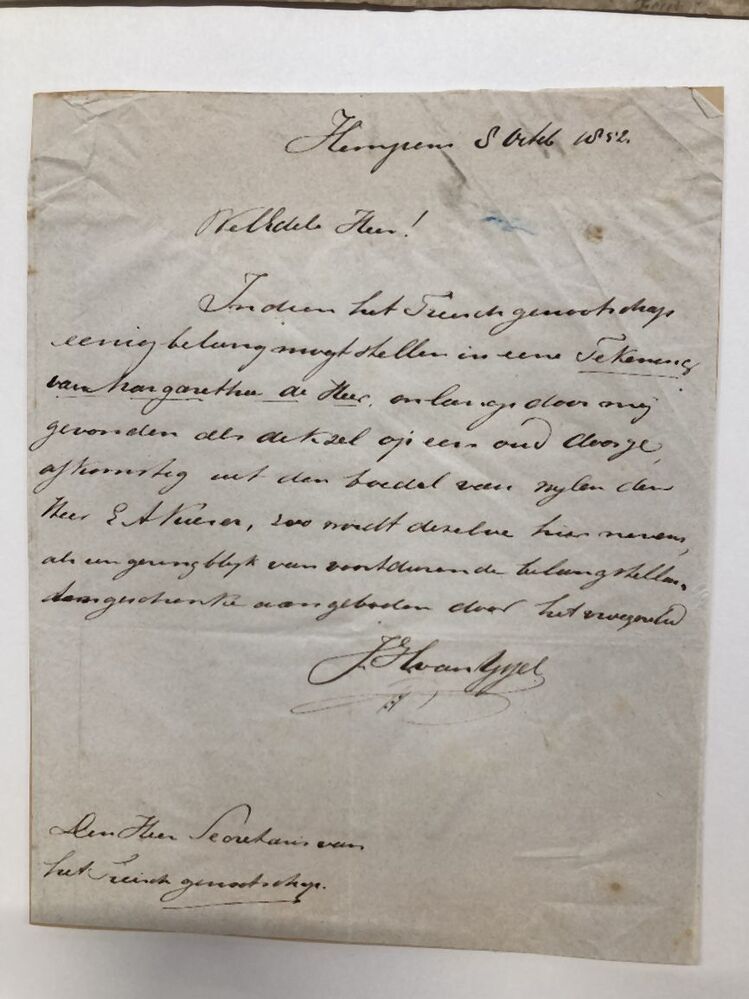 Hempens 8 Octob 1852.
WelEdele Heer!
Indien het Friesch genootschap
eenig belang mogt stellen in eene Tekening
van Margaretha de Heer, onlangs door mij
gevonden als deksel op een oud doosje,
afkomstig uit den boedel van wylen den
Heer E A, zoo wordt dezelve hier nevens,
als een gering blyk van voortdurende belangstelling,
ten geschenke aangeboden door het
J H van
Den Heer Secretaris van
het Friesch genootschap.